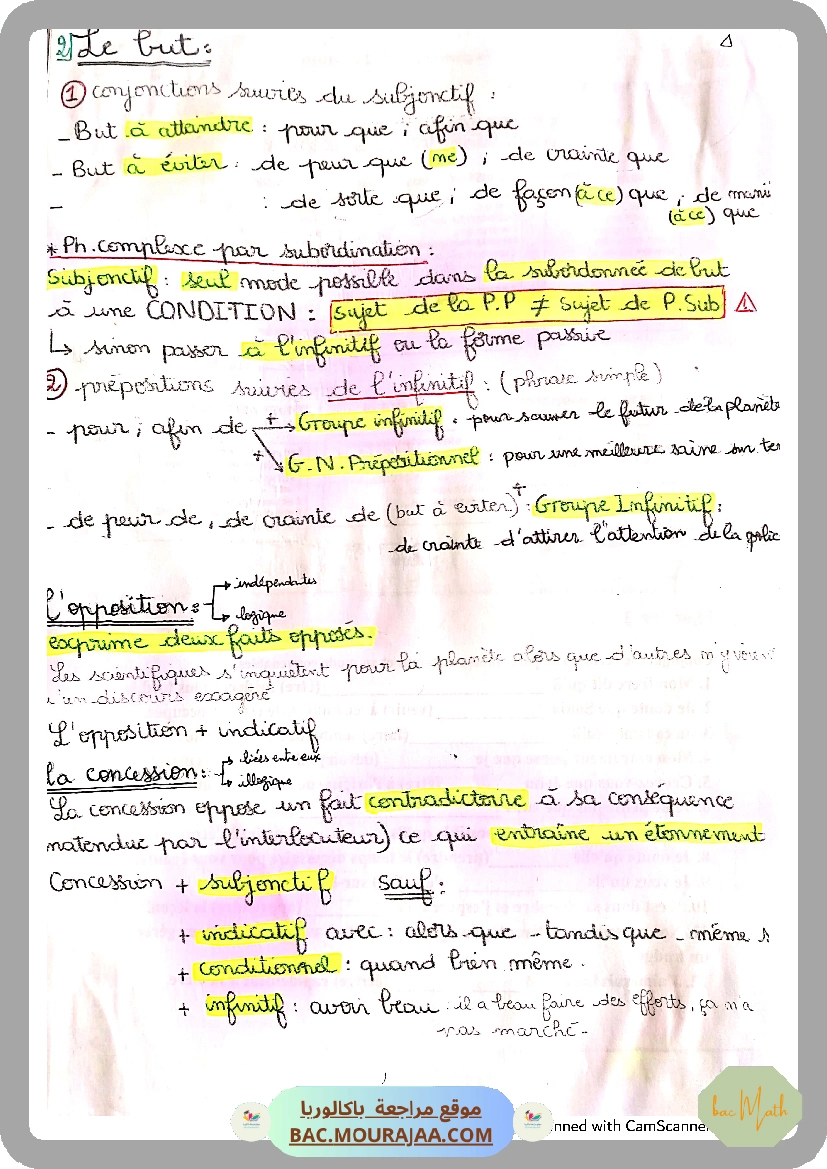 2) Le but :
1 conjonctions suivies du subjonctif :
- But à atteindre : pour que ; afin que
- But à éviter : de peur que (ne) ; de crainte que
- : de sorte que ; de façon (à ce) que ; de mani
(à ce) que
* Ph. complexe par subordination :
Subjonctif : seul mode possible dans la subordonnée de but
à une CONDITION : Sujet de la P.P ≠ Sujet de P.Sub ⚠
↳ sinon passer à l'infinitif ou la forme passive
2 prépositions suivies de l'infinitif : (phrase simple)
- pour ; afin de + → Groupe infinitif . pour sauver le futur de la planèt
+ ↘ G.N. Prépositionnel : pour une meilleure saine sur ter
- de peur de , de crainte de (but à éviter) + : Groupe Infinitif :
de crainte d'attirer l'attention de la polic
L'opposition : → indépendantes
→ logique
exprime deux faits opposés.
Les scientifiques s'inquiètent pour la planète alors que d'autres n'y voient
un discours exagéré
L'opposition + indicatif
la concession : → liées entre eux
→ illogique
La concession oppose un fait contradictoire à sa conséquence
natendue par l'interlocuteur) ce qui entraîne un étonnement
Concession + subjonctif Sauf :
+ indicatif avec : alors que - tandis que - même s
+ conditionnel : quand bien même .
+ infinitif : avoir beau : il a beau faire des efforts, ça n'a
pas marché .
موقع مراجعة باكالوريا
BAC.MOURAJAA.COM
nned with CamScanner
bac Math